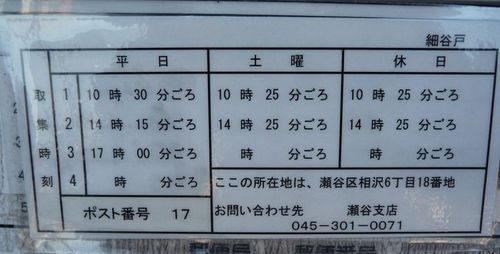 細谷戸
平日 土曜 休日
取 1 10時30分ごろ 10時25分ごろ 10時25分ごろ
集 2 14時15分ごろ 14時25分ごろ 14時25分ごろ
時 3 17時00分ごろ
刻 4 時 分ごろ ここの所在地は、瀬谷区相沢6丁目18番地
ポスト番号 17 お問い合わせ先 瀬谷支店
045-301-0071